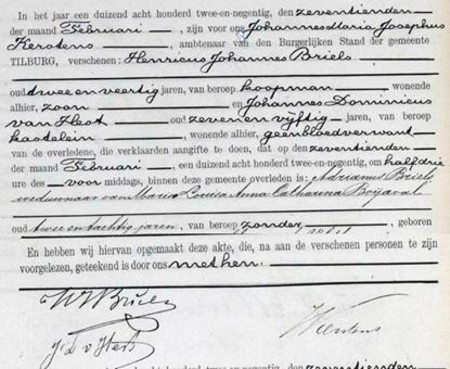 In het jaar een duizend acht honderd twee-en-negentig, den zeventienden
der maand Februari, zijn voor ons Johannes Maria Josephus
Kerstens, ambtenaar van den Burgerlijken Stand der gemeente
TILBURG, verschenen: Henricus Johannes Briels
oud twee en veertig jaren, van beroep koopman wonende
alhier, zoon en Johannes Dominicus
van Hest oud zeven en vijftig jaren, van beroep
kastelein, wonende alhier, geen bloedverwant
van de overledene, die verklaarden aangifte te doen, dat op den zeventienden
der maand Februari, een duizend acht honderd twee-en-negentig, om half drie
ure des voor middags, binnen deze gemeente overleden is: Adrianus Briels
weduwnaar van Maria Louisa Anna Catharina
oud twee en tachtig jaren, van beroep zonder, geboren
En hebben wij hiervan opgemaakt deze akte, die, na aan de verschenen personen te zijn
voorgelezen, geteekend is door ons met hen.
Briels
Kerstens
J D v Hest
acht honderd twee-en-negentig, den zeventienden